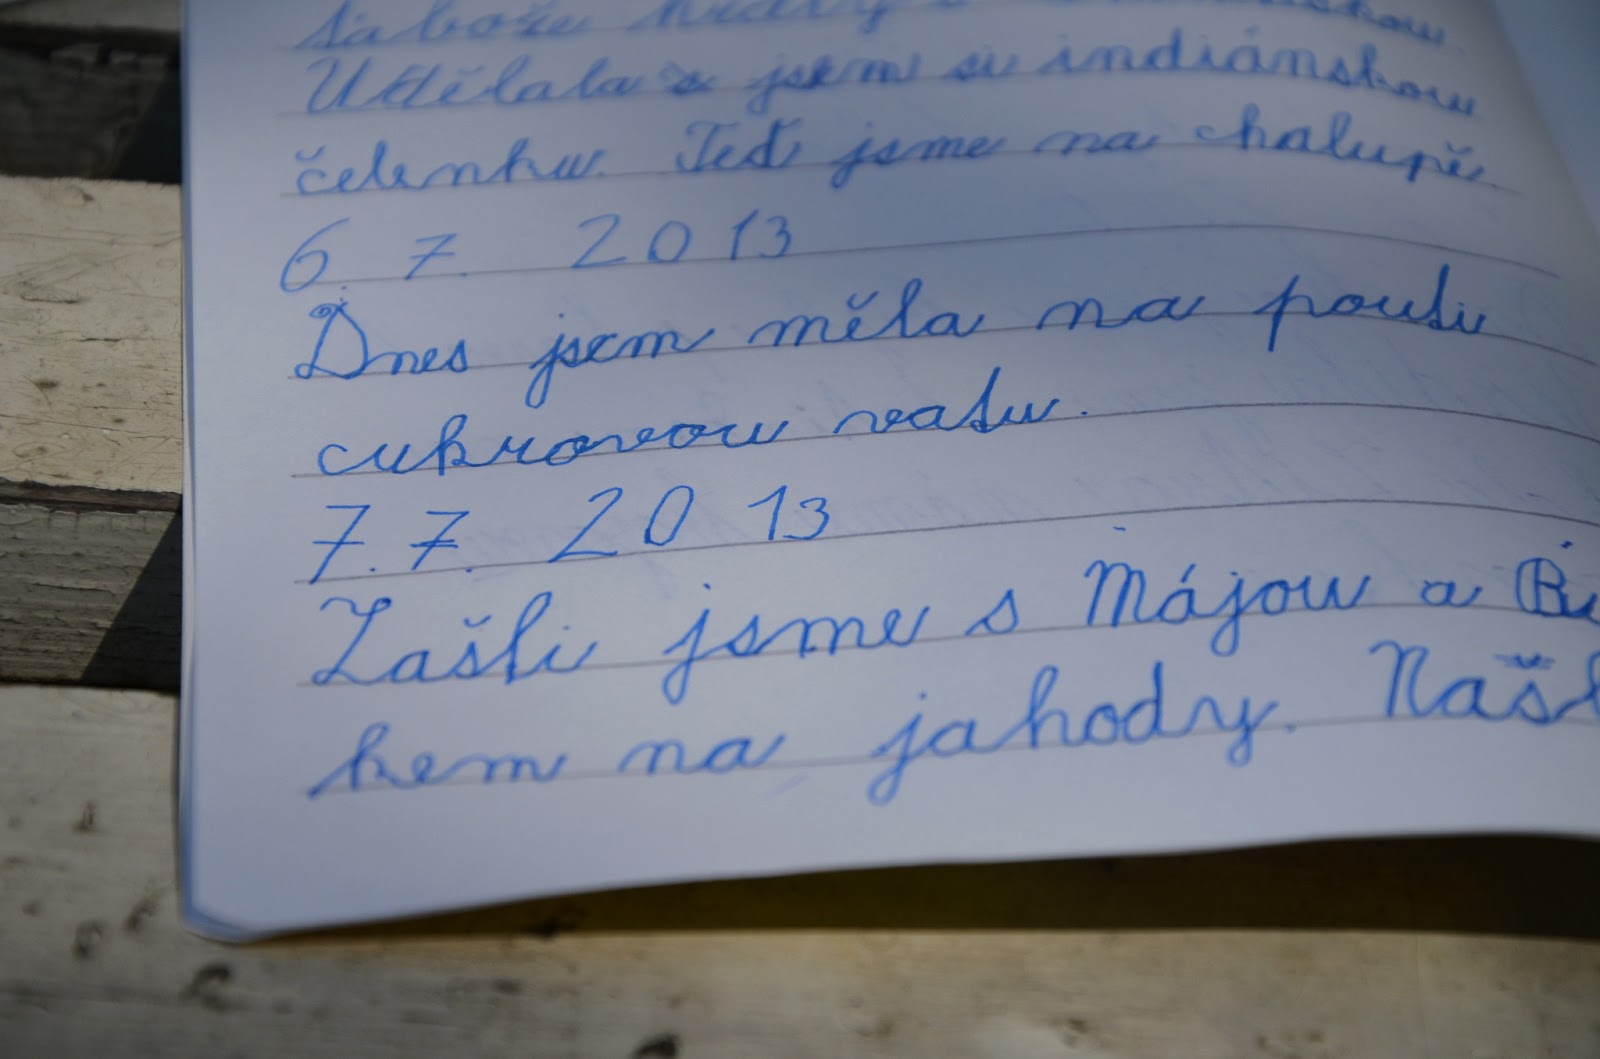 Udělala jsem si indiánskou
čelenku. Teď jsme na chalupě.
6. 7. 2013
Dnes jsem měla na pouti
cukrovou vatu.
7. 7. 2013
Zašli jsme s Májou a
kem na jahody.